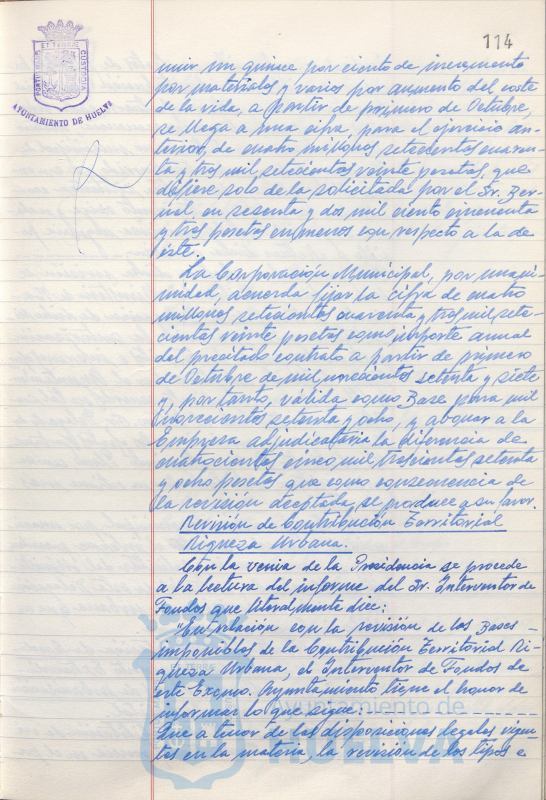 114
PORTUS MARIS ET TERRAE CUSTODIA
AYUNTAMIENTO DE HUELVA
un quince por ciento de incremento
por materiales y varios por aumento del coste
de la vida, a partir de primero de Octubre,
se llega a una cifra, para el ejercicio an-
terior, de cuatro millones setecientas cuaren-
ta y tres mil setecientas veinte pesetas, que
difiere solo de la solicitada por el Sr.
en sesenta y dos mil ciento
y tres pesetas en menos con respecto a la de
éste.
La Corporación Municipal, por unani-
midad, acuerda fijar la cifra de cuatro
millones setecientas cuarenta y tres mil sete-
cientas veinte pesetas como importe anual
del precitado contrato a partir de primero
de Octubre de mil novecientos setenta y siete
y, por tanto, válida como Base para mil
novecientos setenta y ocho, y abonar a la
Empresa adjudicataria la diferencia de
cuatrocientas cinco mil trescientas setenta
y ocho pesetas que como consecuencia de
la revisión aceptada, se produce a su favor.
Revisión de Contribución Territorial
Riqueza Urbana.
Con la venia de la Presidencia se procede
a la lectura del informe del Sr. Interventor de
Fondos que literalmente dice:
"En relación con la revisión de las Bases
imponibles de la Contribución Territorial Ri-
queza Urbana, el Interventor de Fondos de
este Excmo. Ayuntamiento tiene el honor de
informar lo que sigue:
Que a tenor de las disposiciones legales vigen-
tes en la materia, la revisión de los tipos e
Ayuntamiento de
HUELVA